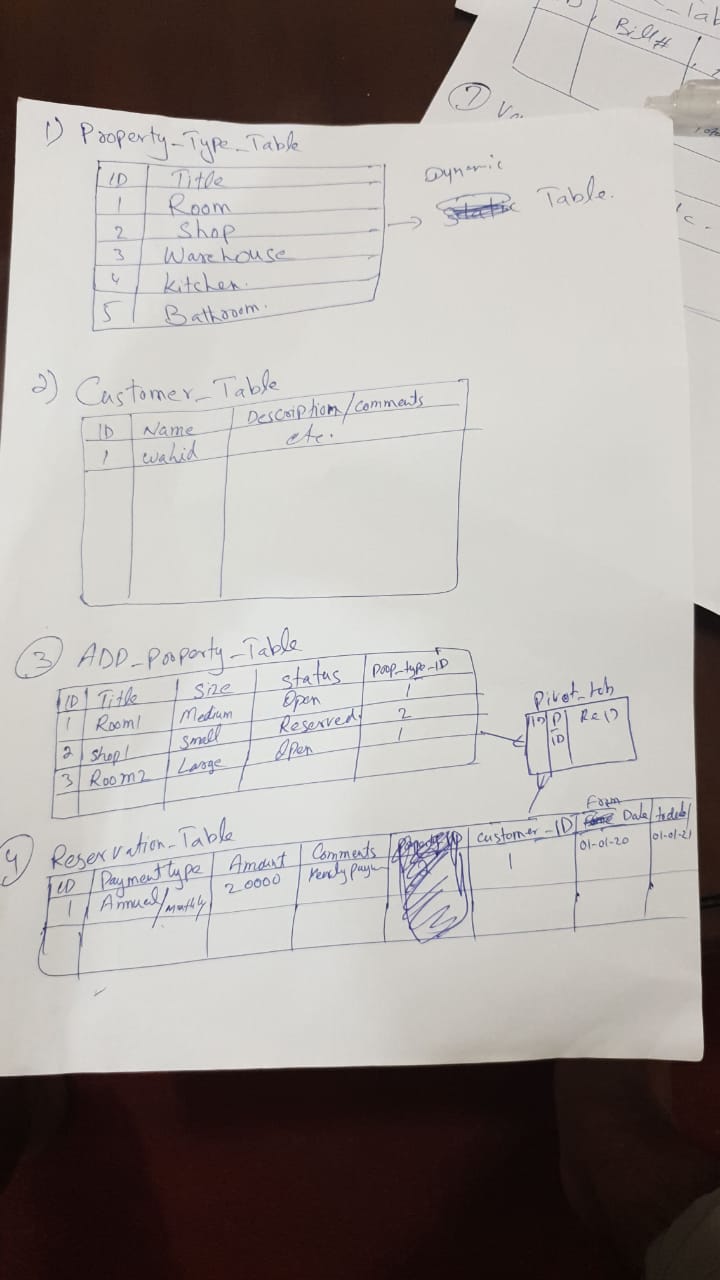 Bill#
7
1) Property_Type_Table
ID Title
1 Room
2 Shop
3 Warehouse
4 kitchen.
5 Bathroom.
Dynamic
Static Table.
2) Customer_Table
ID Name Description/comments
etc.
1 wahid
3 ADD_Property_Table
ID Title Size Status Prop_type_ID
1 Room1 Medium Open 1
2 Shop1 Small Reserved. 2
3 Room2 Large Open 1
Pivot_tab
ID P ID Re
4 Reservation_Table
ID Payment type Amount Comments customer_ID Form Date todate
1 Annual/Monthly 20000 1 01-01-20 01-01-21